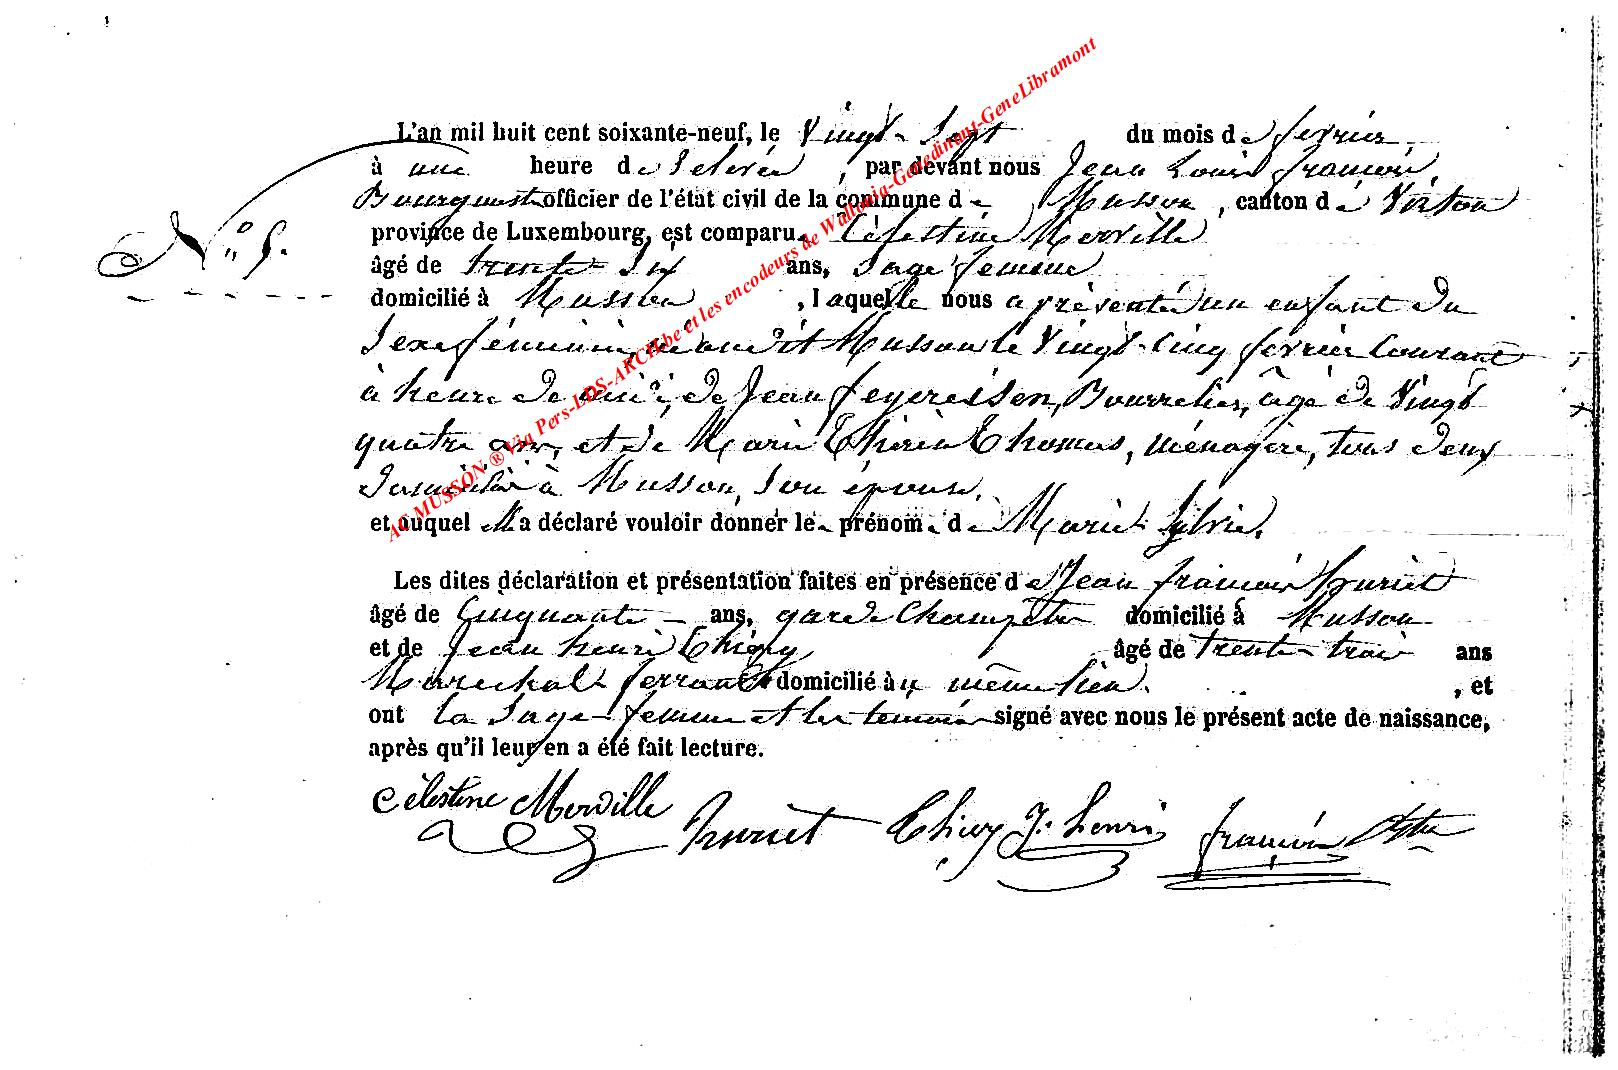 L'an mil huit cent soixante-neuf, le Vingt-Sept du mois de fevrier,
à une heure de Relevée, par devant nous Jean Louis françois,
Bourgmestre officier de l'état civil de la commune de Musson, canton de Virton
N° 5.
province de Luxembourg, est comparu Célestine Merville
âgé de trente-Six ans, Sage femme
domicilié à Musson, laquelle nous a présenté un enfant du
Sexe féminin, né audit Musson le Vingt-Cinq fevrier Courant
à heure de midi, de Jean feyereisen, Bourrelier, âgé de Vingt
quatre ans, et de Marie Thérèse Thomas, ménagère, tous deux
domiciliés à Musson, Son épouse,
et auquel elle a déclaré vouloir donner le prénom de Marie-Sylvie.
Les dites déclaration et présentation faites en présence de Jean françois
âgé de Cinquante ans, garde Champêtre domicilié à Musson
et de Jean henri Thiry âgé de trente-trois ans
Maréchal ferrant domicilié au même lieu, et
ont la Sage-femme et les temoins signé avec nous le présent acte de naissance,
après qu'il leur en a été fait lecture.
Célestine Merville Thiry J. henri françois
AC MUSSON ® Via Pers-LDS-ARCH.be et les encodeurs de Wallonia-Genedinant-GeneLibramont